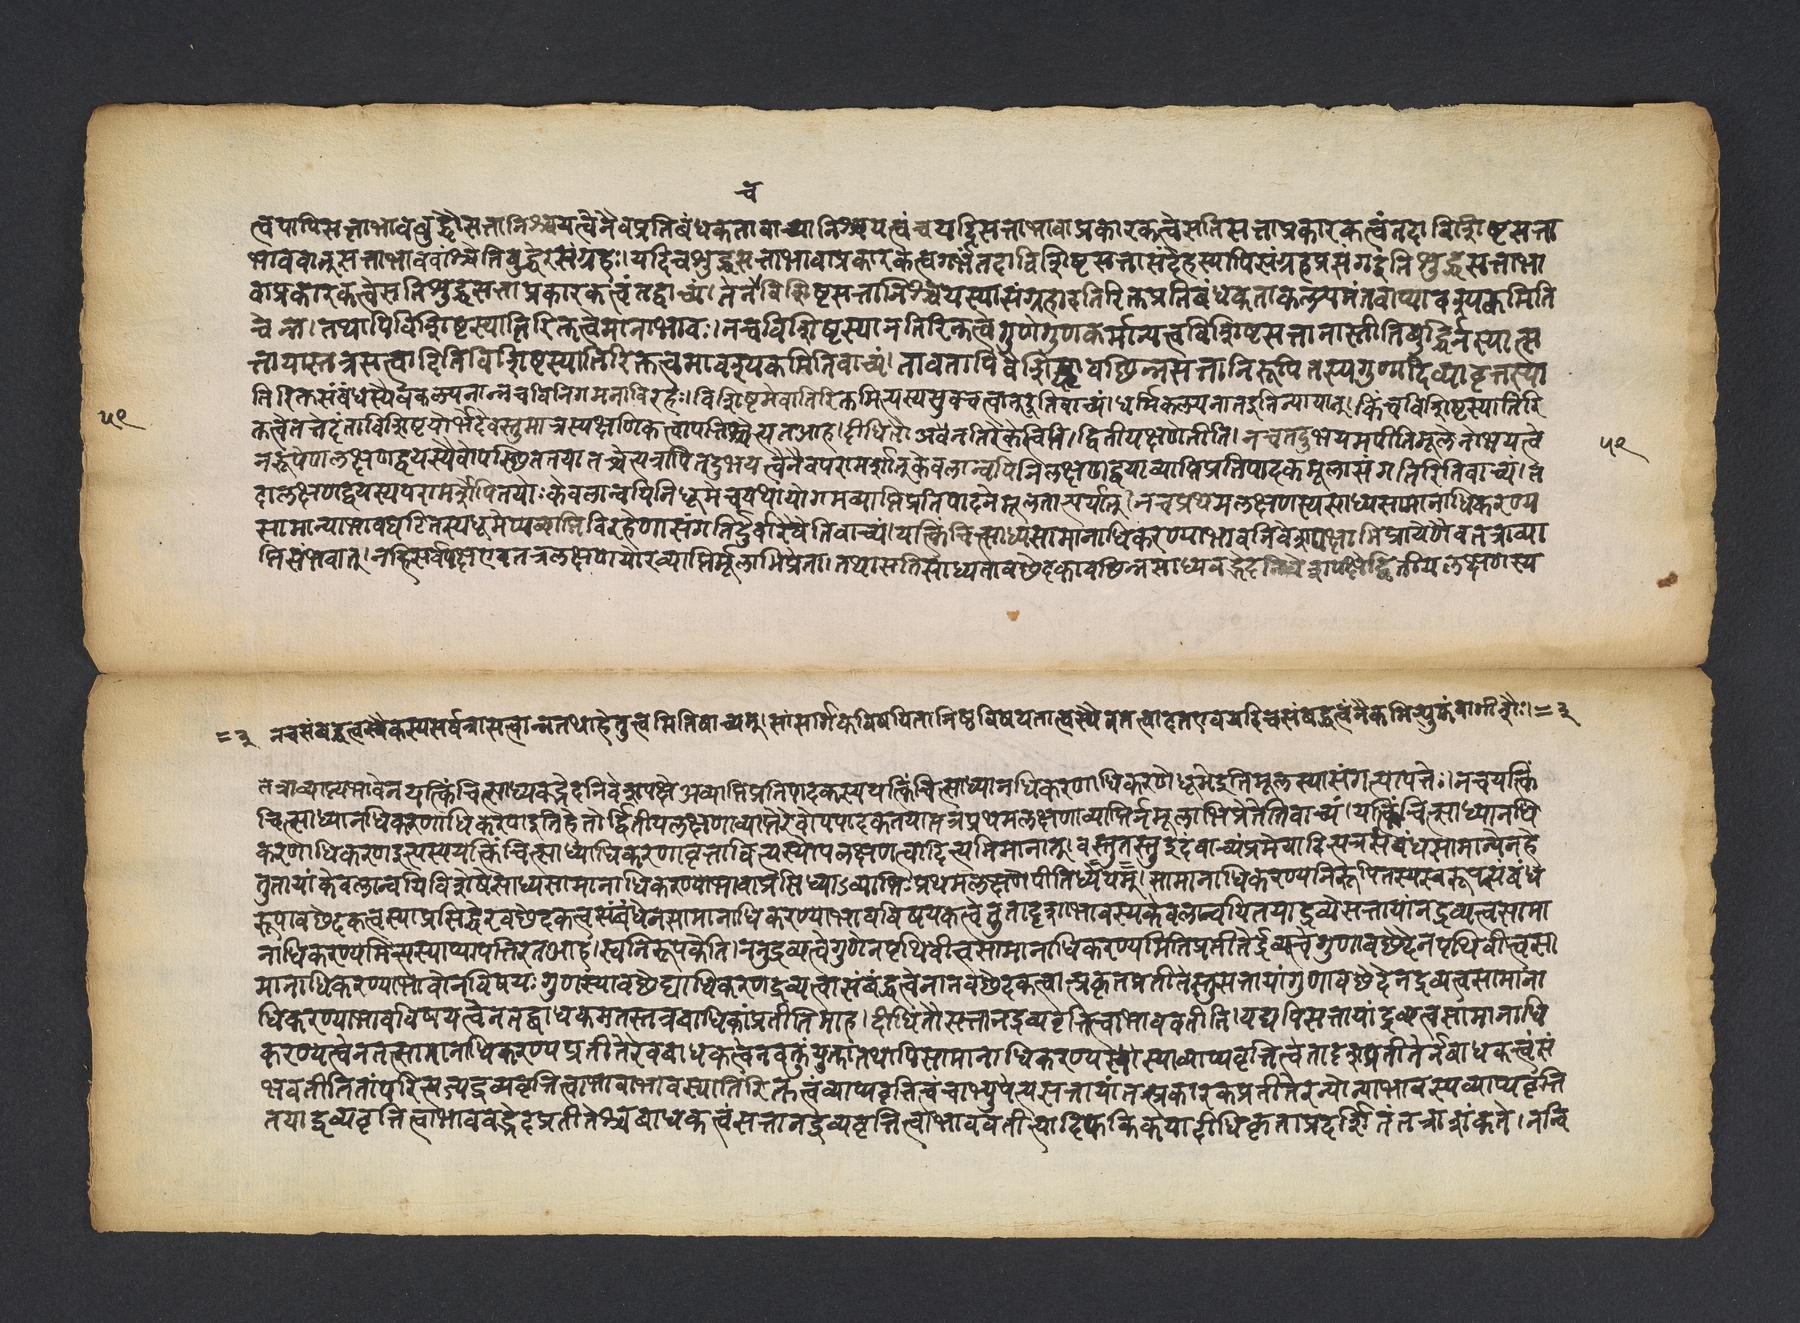 चे
त्वयापि सत्ताभावबुद्धौ सत्तानिश्चयत्वेनैव प्रतिबंधकता वाच्या निश्चयत्वं च यदि सत्ताभावाप्रकारकत्वे सति सत्ताप्रकारकत्वं तदा विशिष्टसत्ता
भाववान् सत्ताभाववांश्चेति बुद्धेरसंग्रहः। यदि च शुद्धसत्ताभावाप्रकारकत्वगर्भं तदा विशिष्टसत्तासंदेहस्यापि संग्रहप्रसंग इति शुद्धसत्ताभा
वाप्रकारकत्वे सति शुद्धसत्ताप्रकारकत्वं तद्वाच्यं। तेन विशिष्टसत्तानिश्चयस्यासंग्रहादतिरिक्तप्रतिबंधकताकल्पनं तवाप्यावश्यकमिति
चेन्न। तथापि विशिष्टस्यातिरिक्तत्वे मानाभावः। न च विशिष्टस्यानतिरिक्तत्वे गुणे गुणकर्मान्यत्वविशिष्टसत्ता नास्तीति बुद्धिर्न स्यात्स
त्तायास्तत्र सत्त्वादिति विशिष्टस्यातिरिक्तत्वमावश्यकमिति वाच्यं। तावतापि वैशिष्ट्यावच्छिन्नसत्तानिरूपितस्य गुणादिव्यावृत्तस्या
तिरिक्तसंबंधस्यैव कल्पनान्न च विनिगमनाविरहः। विशिष्टमेवातिरिक्तमित्यस्य सुवचत्वात् इति वाच्यं। धर्मिकल्पनात इति न्यायात्। किं च विशिष्टस्यातिरि
क्तत्वे तत्तेदंताविशिष्टयोर्भेदे वस्तुमात्रस्य क्षणिकत्वापत्तिश्चेत्यत आह। दीधितौ अथेनतिरेकत्विति। द्वितीयक्षणेतीति। नन्वेतदुभयमपीति मूलेनोभयत्वे
न रूपेण लक्षणद्वयस्यैवोपस्थिततया तच्चेत्यत्रापि तदुभयत्वेनैव परामर्शात् केवलान्वयिनि लक्षणद्वयाव्याप्तिप्रतिपादकमूलासंगतिरिति वाच्यं। त
दा लक्षणद्वयस्य परामर्शेपि तयोः केवलान्वयिनि धूमे च यथायोगमव्याप्तिप्रतिपादने मूलतात्पर्यात्। न च प्रथमलक्षणस्य साध्यसामानाधिकरण्य
सामान्याभावघटितस्य धूमेप्यव्याप्तिविरहेणासंगतिर्दुर्वारैवेति वाच्यं। यत्किंचित्साध्यसामानाधिकरण्याभावनिवेशपक्षाभिप्रायेणैव तत्राव्या
प्तिसंभवात्। न हि सर्वपक्ष एव तत्र लक्षणयोरव्याप्तिर्मूलाभिप्रेता। तथा सति साध्यतावच्छेदकावच्छिन्नसाध्यवद्भेदनिवेशपक्षे द्वितीयलक्षणस्य
५९
५९
=३ न च संबद्धत्वस्यैकस्य सर्वत्रासत्वान्न तथा हेतुत्वमिति वाच्यम्। सांसर्गिकविषयितानिष्ठविषयतात्वस्यैव तत्वादत एव यदि च संबद्धत्वं नैकमित्युक्तं वागीशैः। =३
तत्राव्याप्त्यभावेन यत्किंचित्साध्यवद्भेदनिवेशपक्षे अव्याप्तिप्रतिपादकस्य यत्किंचित्साध्यानधिकरणाधिकरणे धूमे इति मूलस्यासंगत्यापत्तेः। न च यत्किं
चित्साध्यानधिकरणाधिकरणे इति हेतोर्द्वितीयलक्षणाव्याप्तेरेवोपपादकतया तत्र प्रथमलक्षणाव्याप्तिर्न मूलाभिप्रेतेति वाच्यं। यत्किंचित्साध्यानधि
करणाधिकरण इत्यस्य यत्किंचित्साध्याधिकरणावृत्तावित्यस्योपलक्षणत्वादित्यभिमानात्। वस्तुतस्तु इदं वाच्यं प्रमेयादित्यत्र संबंधसामान्येन हे
तुतायां केवलान्वयिविशेषे साध्यसामानाधिकरण्याभावाप्रसिध्याऽव्याप्तिः प्रथमलक्षणेपीति ध्येयम्। सामानाधिकरण्यनिरूपितस्य स्वरूपसंबंध
रूपावच्छेदकत्वस्याप्रसिद्धेरवच्छेदकत्वसंबंधेन सामानाधिकरण्याभावविषयकत्वे तु तादृशाभावस्य केवलान्वयितया द्रव्ये सत्तायां न द्रव्यत्वसामा
नाधिकरण्यमित्यस्याप्यापत्तिरत आह। स्वनिरूपकेति। ननु द्रव्यत्वे गुणे न पृथिवीत्वसामानाधिकरण्यमिति प्रतीतेर्द्रव्यत्वे गुणावच्छेदेन पृथिवीत्वसा
मानाधिकरण्याभावो न विषयः गुणस्यावच्छेद्याधिकरणद्रव्यत्वासंबद्धत्वेनानवच्छेदकत्वात्प्रकृतप्रतीतेस्तु सत्तायां गुणावच्छेदेन द्रव्यत्वसामाना
धिकरण्याभावविषयत्वेन तद्बाधकमतस्तत्र बाधिकां प्रतीतिमाह। दीधितौ सत्ता न द्रव्यवृत्तित्वाभाववतीति। यद्यपि सत्तायां द्रव्यत्वसामानाधि
करण्यत्वेन तत्सामानाधिकरण्यप्रतीतेरेव बाधकत्वं न वक्तुं युक्तं तथापि सामानाधिकरण्यस्याव्याप्यवृत्तित्वे तादृशप्रतीतेर्न बाधकत्वं सं
भवतीति तां परित्यज्य द्रव्यवृत्तित्वाभावाभावस्यातिरिक्तत्वं व्याप्यवृत्तित्वं चाभ्युपेत्य सत्तायां तत्प्रकारकप्रतीतेरन्योन्याभावस्य व्याप्यवृत्ति
तया द्रव्यवृत्तित्वाभाववद्भेदप्रतीतेश्च बाधकत्वं सत्ता न द्रव्यवृत्तित्वाभाववतीत्यादिफक्किकया दीधिकृता प्रदर्शितं तत्राशंकते। नन्वि